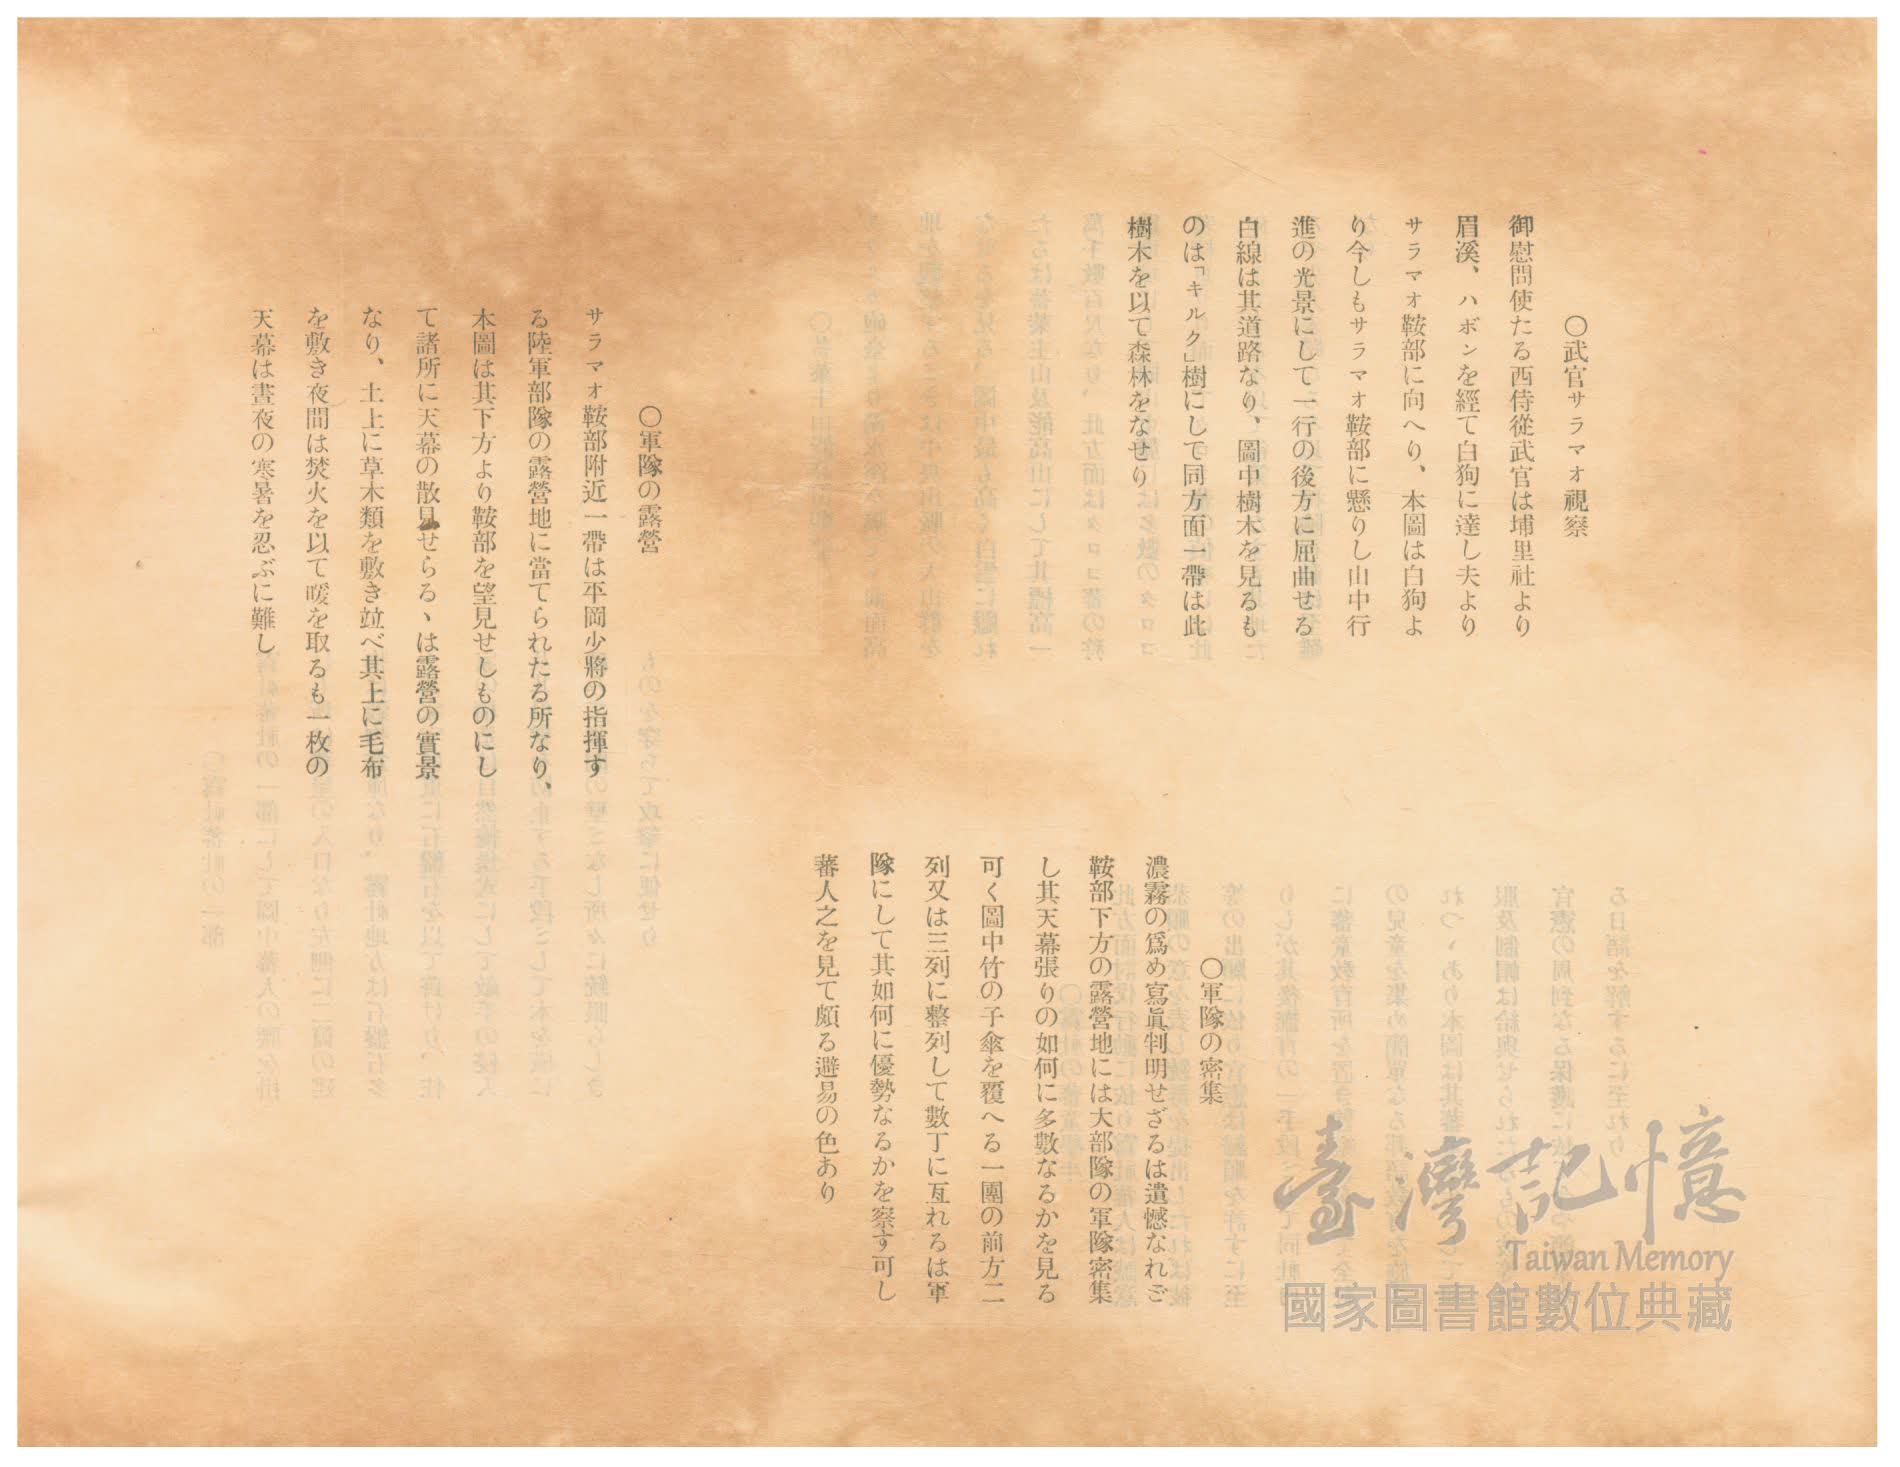 〇武官サラマオ視察
御慰問使たる西侍從武官は埔里社より
眉溪、ハボンを經て白狗に達し夫より
サラマオ鞍部に向へり、本圖は白狗よ
り今しもサラマオ鞍部に懸りし山中行
進の光景にして一行の後方に屈曲せる
白線は其道路なり、圖中樹木を見るも
のは「キルク」樹にして同方面一帶は此
樹木を以て森林をなせり
〇軍隊の密集
濃霧の爲め寫眞判明せざるは遺憾なれご
鞍部下方の露營地には大部隊の軍隊密集
し其天幕張りの如何に多數なるかを見る
可く圖中竹の子傘を覆へる一團の前方二
列又は三列に整列して數丁に亙れるは軍
隊にして其如何に優勢なるかを察す可し
蕃人之を見て頗る避易の色あり
〇軍隊の露營
サラマオ鞍部附近一帶は平岡少將の指揮す
る陸軍部隊の露營地に當てられたる所なり、
本圖は其下方より鞍部を望見せしものにし
て諸所に天幕の散見せらるゝは露營の實景
なり、土上に草木類を敷き竝べ其上に毛布
を敷き夜間は焚火を以て暖を取るも一枚の
天幕は晝夜の寒暑を忍ぶに難し
臺灣記憶
Taiwan Memory
國家圖書館數位典藏